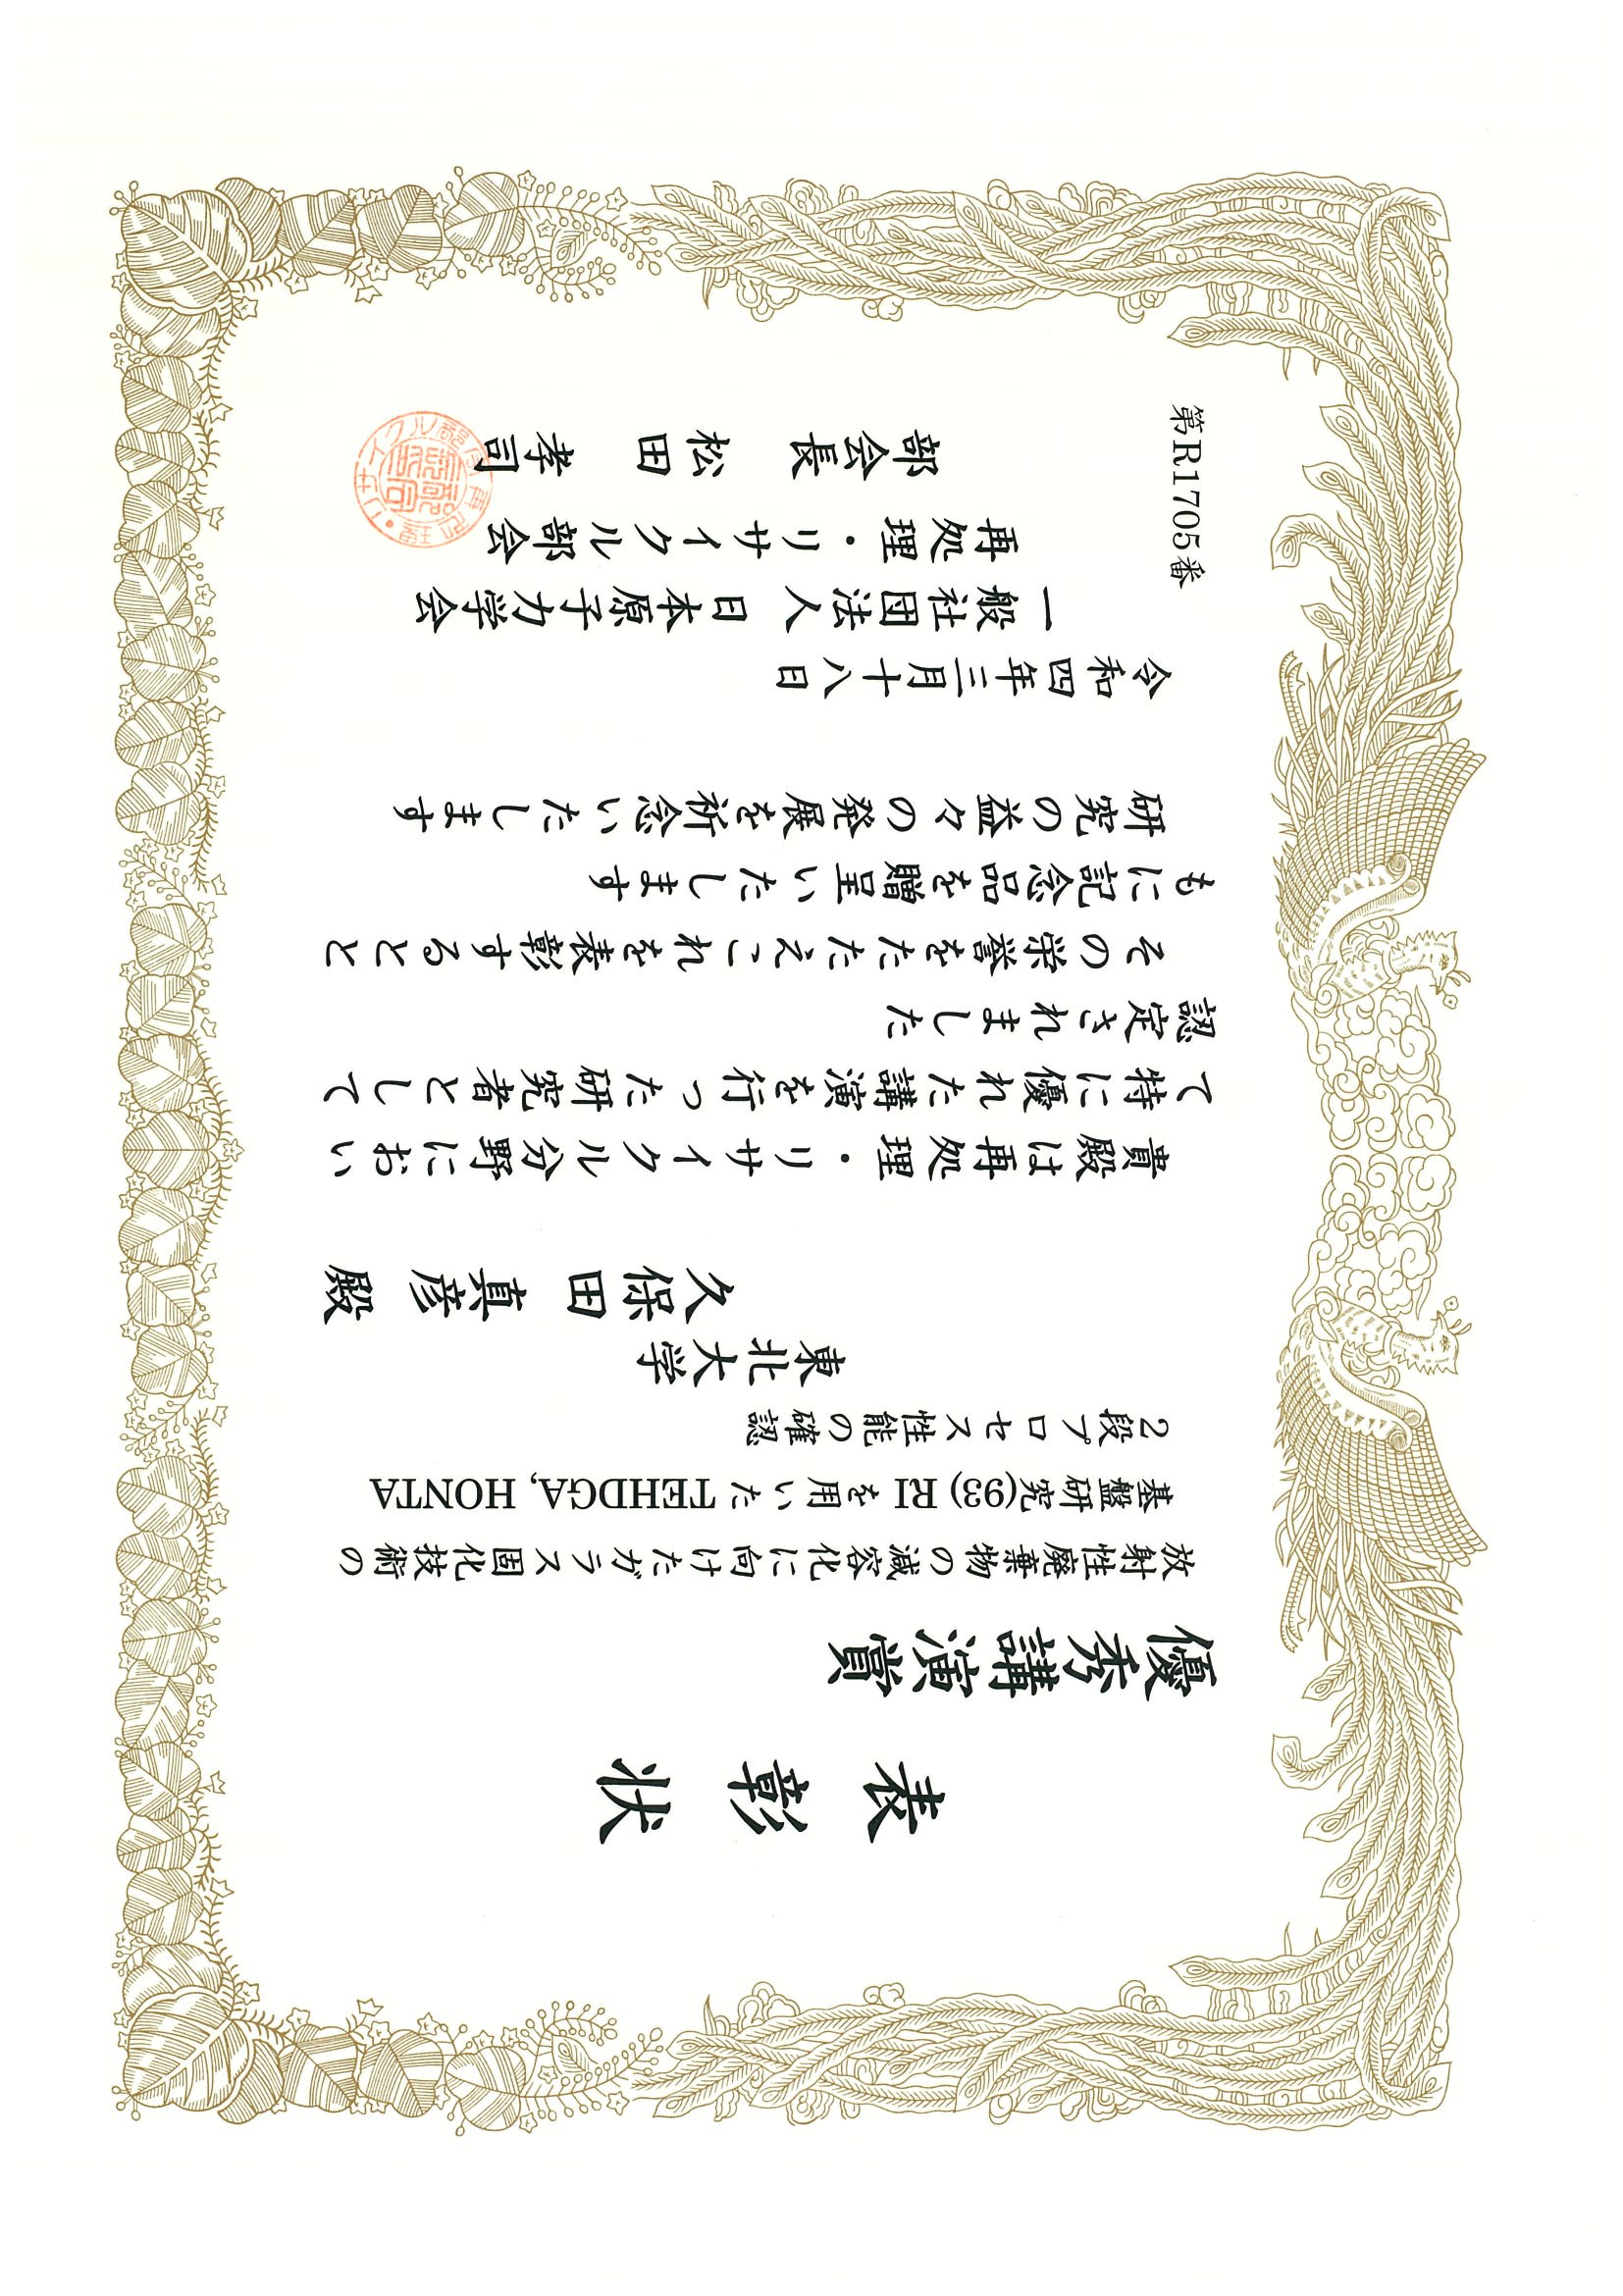 表彰状
優秀講演賞
放射性廃棄物の減容化に向けたガラス固化技術の
基盤研究(93) RIを用いたTEHDGA, HONTA
2段プロセス性能の確認
東北大学
久保田 真彦 殿
貴殿は再処理・リサイクル分野におい
て特に優れた講演を行った研究者として
認定されました
その栄誉をたたえこれを表彰するとと
もに記念品を贈呈いたします
研究の益々の発展を祈念いたします
令和四年三月十八日
一般社団法人 日本原子力学会
再処理・リサイクル部会
部会長 松田 孝司
第IR1705番